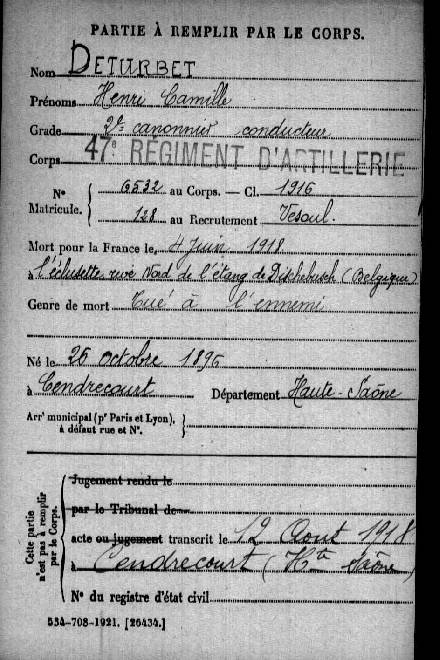 PARTIE À REMPLIR PAR LE CORPS.
Nom DETURBET
Prénoms Henri Camille
Grade 2e canonnier conducteur
Corps 47e RÉGIMENT D'ARTILLERIE
N° 6532 au Corps. — Cl. 1916
Matricule. 128 au Recrutement Vesoul.
Mort pour la France le 4 Juin 1918
à l'éclusette, rive Nord de l'étang de Dickebusch (Belgique)
Genre de mort Tué à l'ennemi
Né le 26 octobre 1896
à Cendrecourt Département Haute-Saône
Arr' municipal (p' Paris et Lyon),
à défaut rue et N°.
Cette partie
n'est pas à remplir
par le Corps.
Jugement rendu le
par le Tribunal de
acte ou jugement transcrit le 12 Août 1918
à Cendrecourt (Hte Saône)
N° du registre d'état civil
534-708-1921. [26434.]